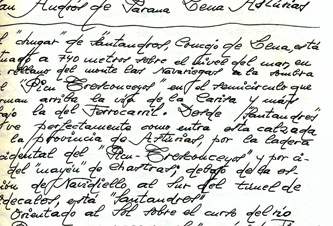 an Andrés de Parana Lena Asturias
l "chugar" de Santandros, Concejo de Lena, está
tuado a 790 metros sobre el nivel del mar, en
rellano del monte las Navariegas a la sombra
l "Picu-Tresconceyos" en el semicírculo que
rman arriba la vía de la Carisa y más
bajo la del Ferrocarril. Desde "Santandros"
ve perfectamente como entra esta calzada
la provincia de Asturias, por la ladera
cidental del "Picu-Tresconceyos" y por ci-
del "mayéu" de Chastras; debajo de la es-
ión de Navidiello al Sur del tunel de
decalos, está "Santandros"
Orientado al Sol sobre el curso del río